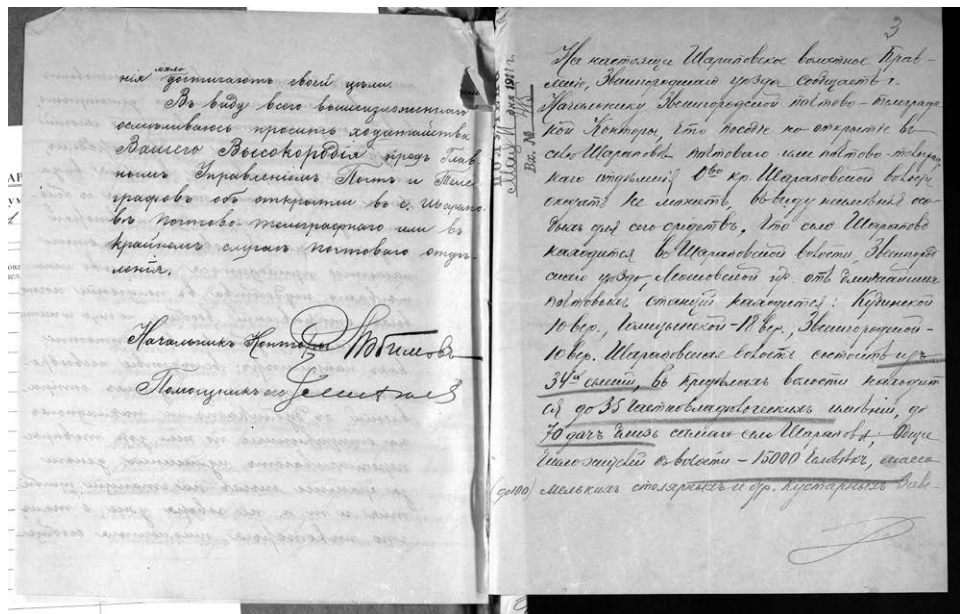 нія мало достигаютъ своей цѣли.
Въ виду всего вышеизложеннаго
осмѣливаюсь просить ходатайства
Вашего Высокородія предъ Глав-
нымъ Управленіемъ Почтъ и Теле-
графовъ объ открытіи въ с. Шарапо-
вѣ почтово-телеграфнаго или въ
крайнемъ случаѣ почтоваго отдѣ-
ленія.
Начальникъ Конторы
Помощникъ его
3
На настоящее Шараповское волостное Прав-
леніе, Звенигородскаго уѣзда сообщаетъ г.
Начальнику Звенигородской почтово-телеграф
ской Конторы, что пособіе на открытіе въ
селѣ Шараповѣ почтоваго или почтово-телеграф
скаго отдѣленія кр. Шараповской волости
оказать не можетъ, въ виду неимѣнія осо-
быхъ для сего средствъ, что село Шарапово
находится въ Шараповской волости, Звенигород
скаго уѣзда, Московской г. отъ ближайшихъ
почтовыхъ станцій находится: Кубинской
10 вер., Голицынской - 18 вер., Звенигородской -
10 вер. Шараповская волость состоитъ изъ
34 селеній, въ предѣлахъ волости находит
ся до 35 частновладѣльческихъ имѣній, до
70 дачъ близь самаго села Шарапова, Общее
число жителей въ волости - 15000 человѣкъ, масса
(до 100) мелкихъ столярныхъ и др. кустарныхъ заве-
Вх. №